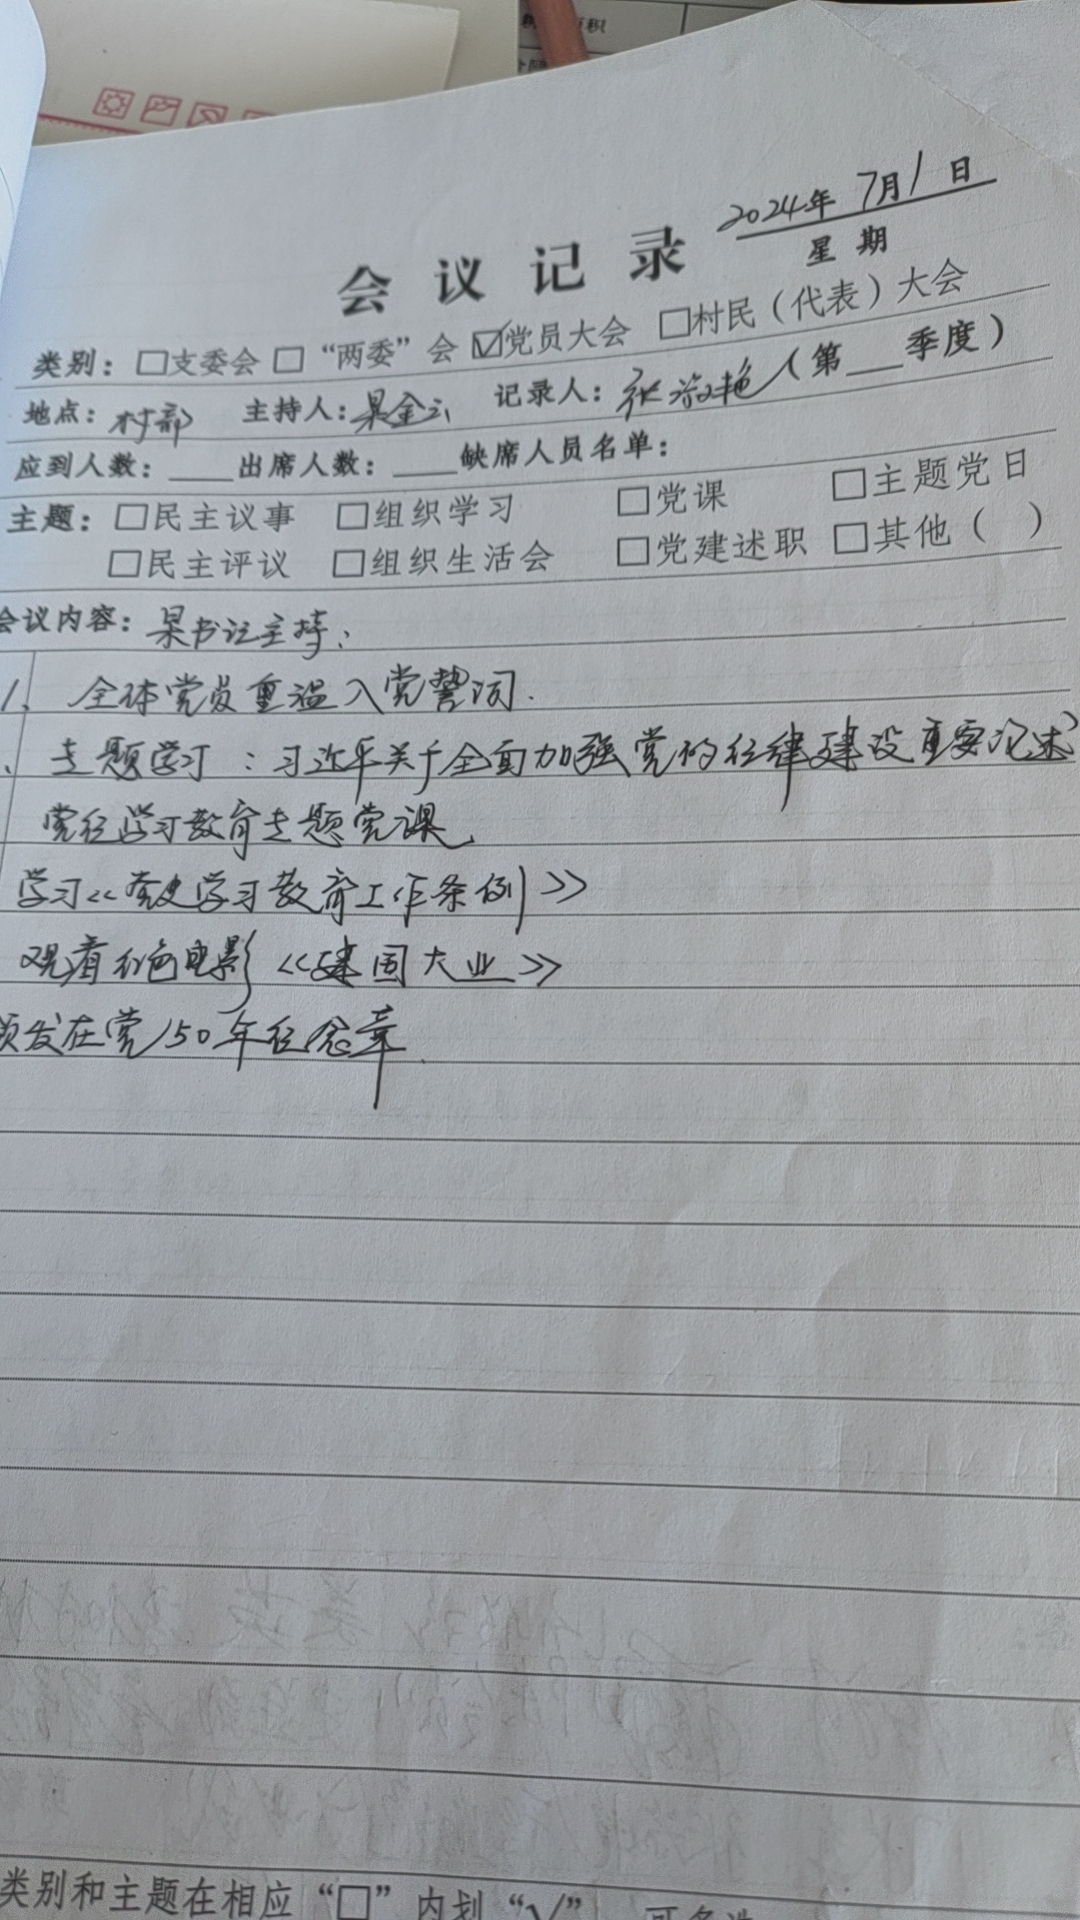 积
2024年 7月1日
星 期
会 议 记 录
类别：□支委会 □“两委”会 ☑党员大会 □村民（代表）大会
地点：村部 主持人：杲金云 记录人：张淑艳（第___季度）
应到人数：____出席人数：____缺席人员名单：
主题：□民主议事 □组织学习 □党课 □主题党日
□民主评议 □组织生活会 □党建述职 □其他（ ）
会议内容：杲书记主持：
1、全体党员重温入党誓词.
、主题学习：习近平关于全面加强党的纪律建设重要论述
党纪学习教育主题党课
学习《党史学习教育工作条例》
观看红色电影《建国大业》
颁发在党50年纪念章.
类别和主题在相应“□”内划“√”